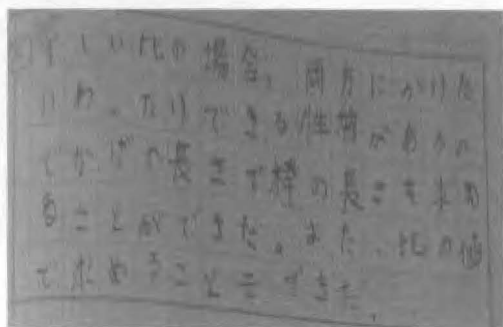 等しい比の場合、両方にかけた
りわったりできる性質があるの
でかげの長さで棒の長さを求め
ることができた。また、比の値
で求めることもできた。